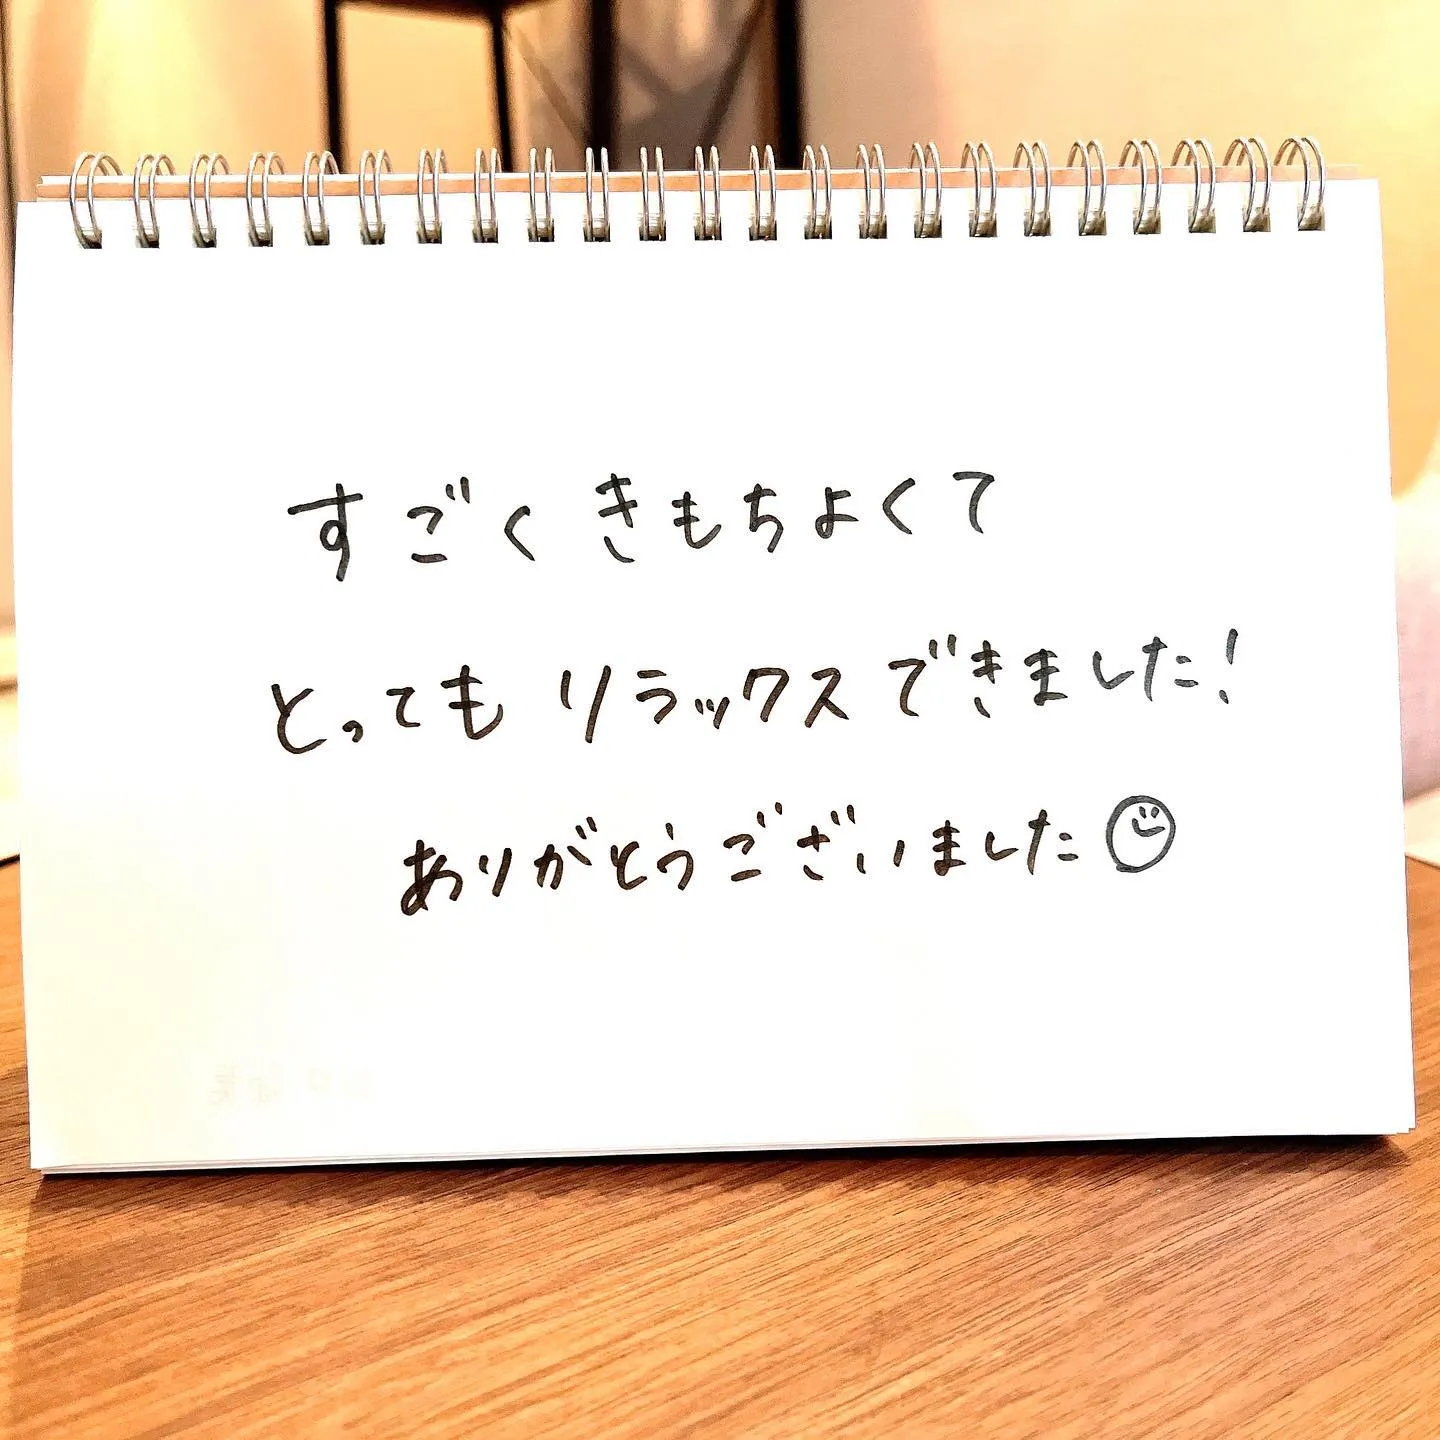 すごく きもちよくて
とっても リラックス できました!
ありがとうございました☺